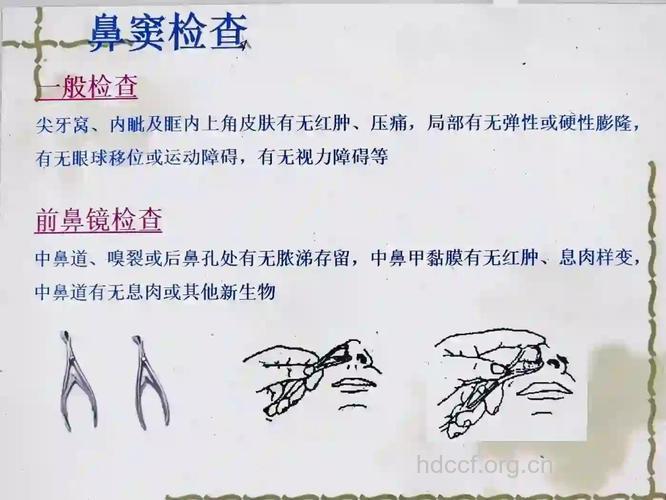 鼻窦检查
一般检查
尖牙窝、内眦及眶内上角皮肤有无红肿、压痛，局部有无弹性或硬性膨隆，
有无眼球移位或运动障碍，有无视力障碍等
前鼻镜检查
中鼻道、嗅裂或后鼻孔处有无脓涕存留，中鼻甲黏膜有无红肿、息肉样变，
中鼻道有无息肉或其他新生物
hdccf.org.cn